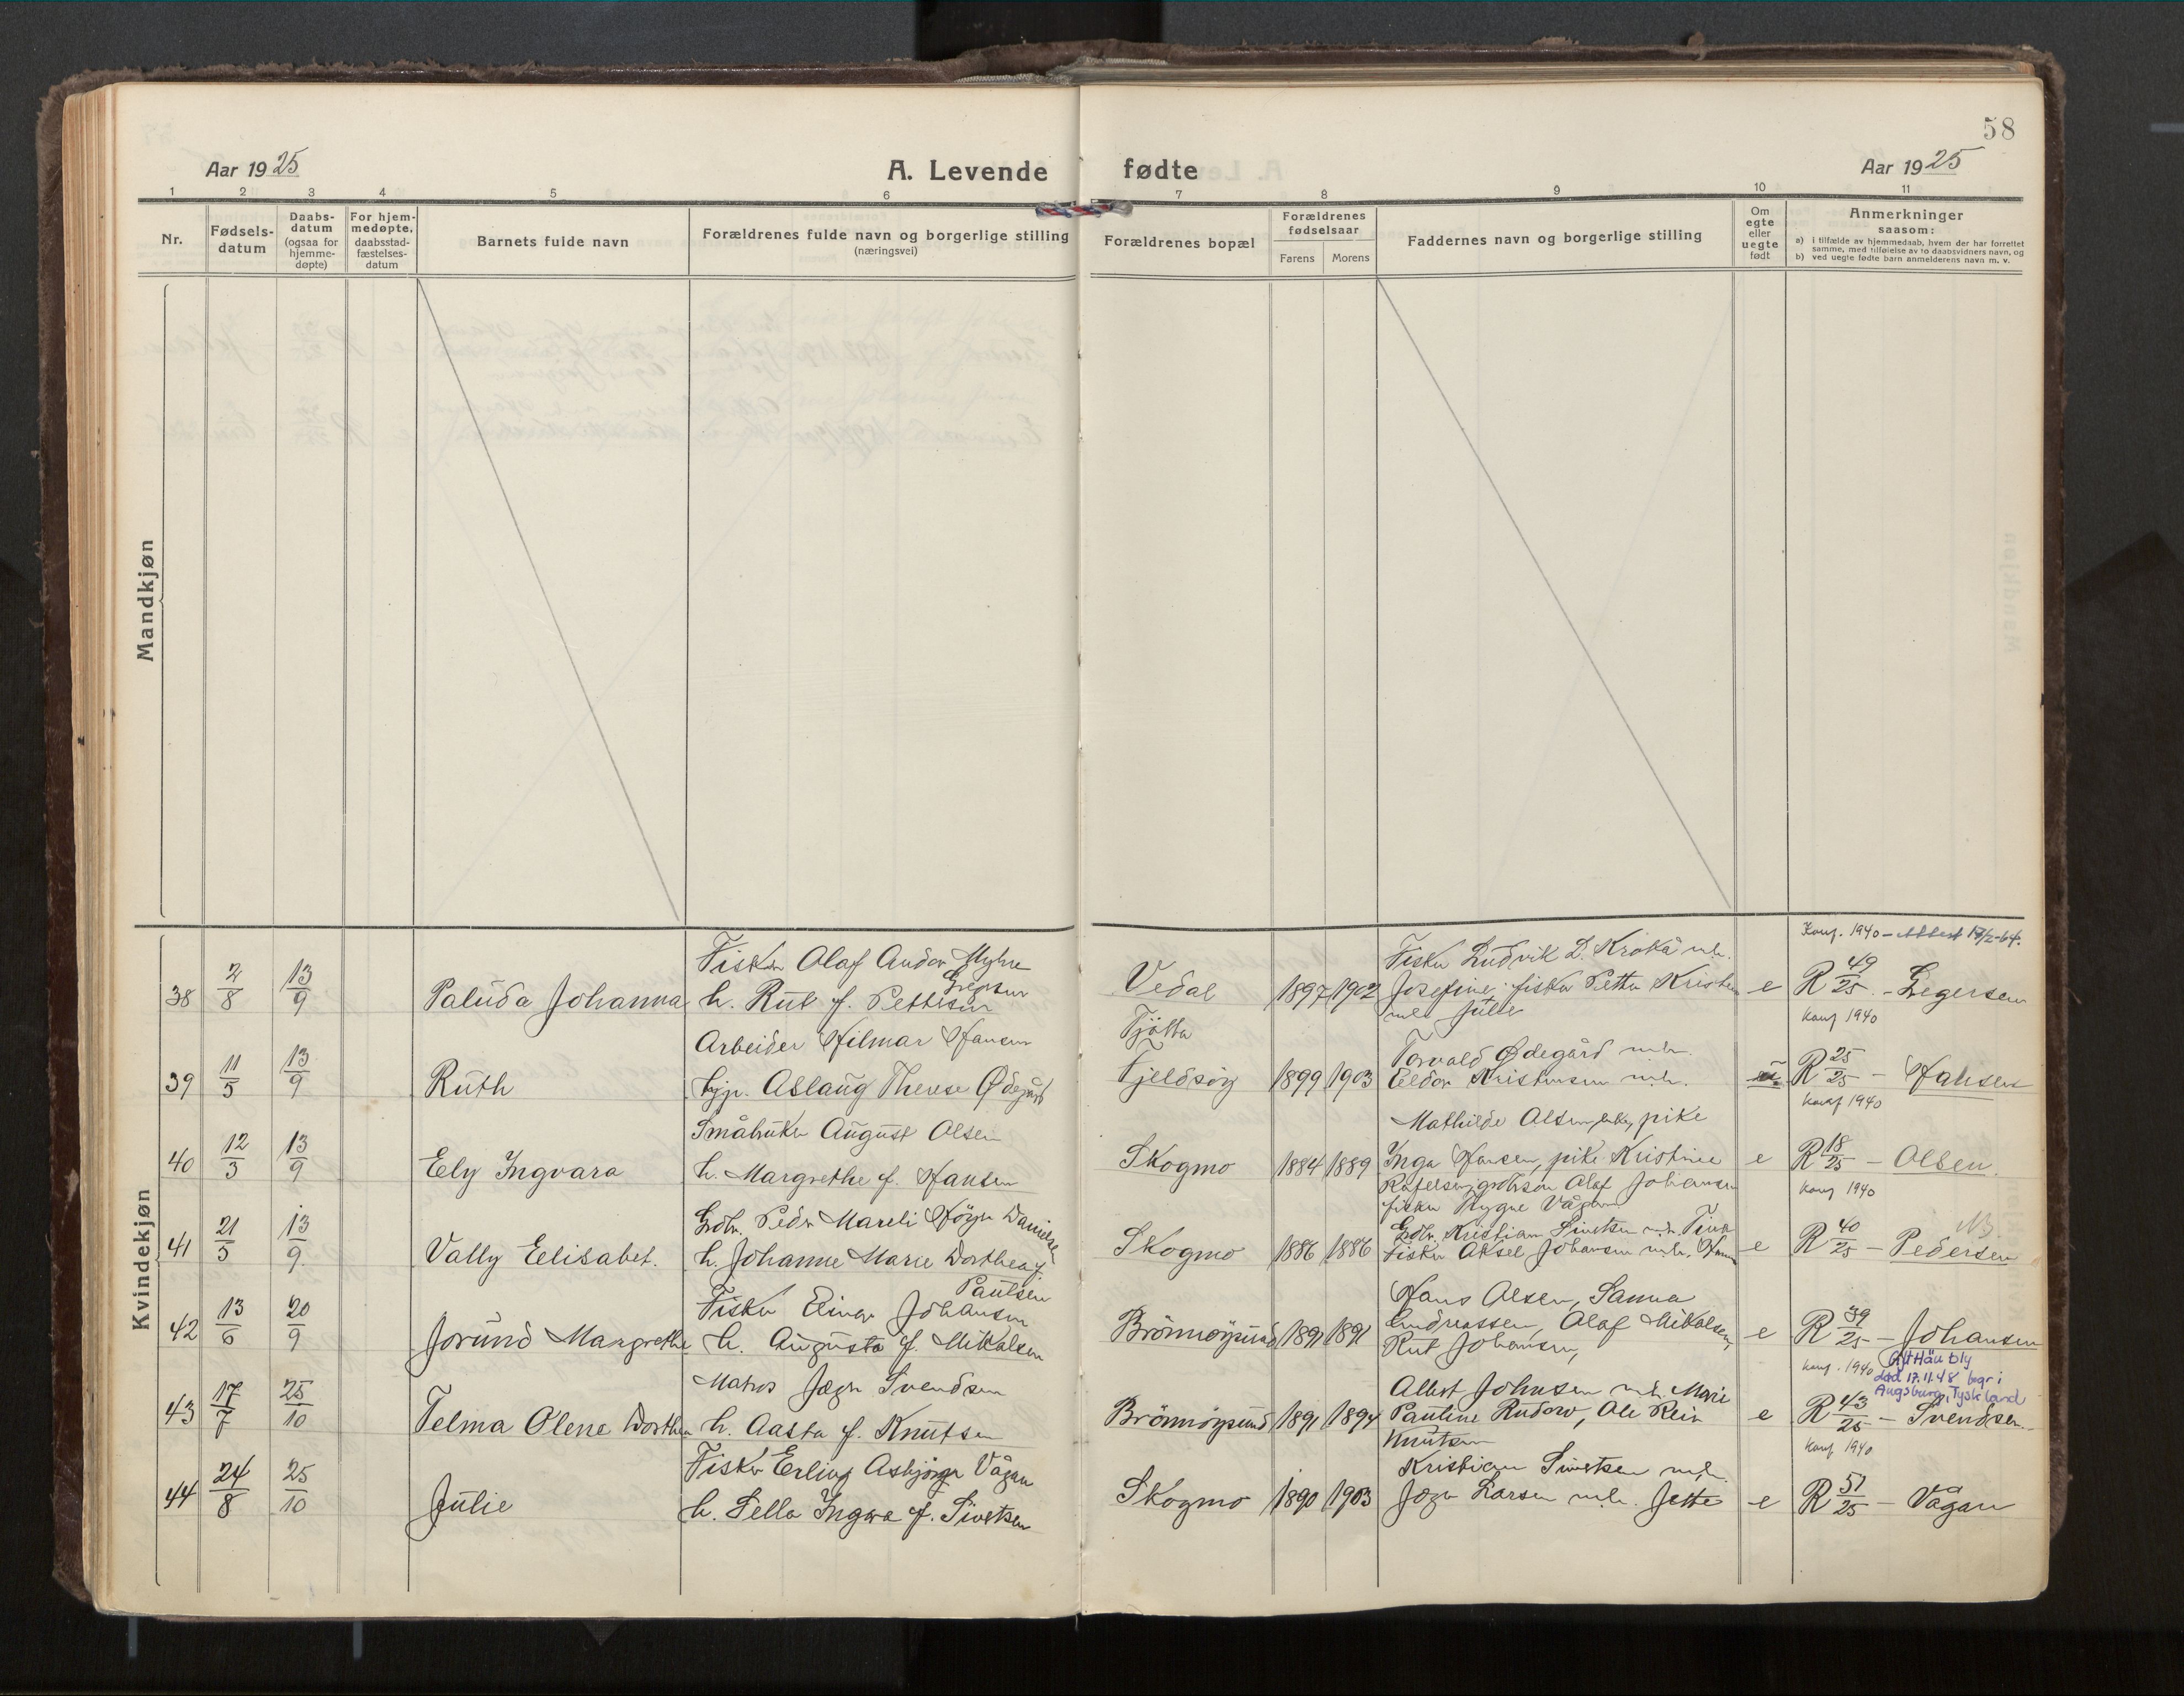 58
Aar 1925
A. Levende
fødte
Aar 1925
1 2 3 4 5 6 7 8 9 10 11
Nr.
Fødsels-
datum
Daabs-
datum
(ogsaa for
hjemme-
døpte)
For hjem-
medøpte,
daabsstad-
fæstelses-
datum
Barnets fulde navn
Forældrenes fulde navn og borgerlige stilling
(næringsvei)
Forældrenes bopæl
Forældrenes
fødselsaar
Farens Morens
Faddernes navn og borgerlige stilling
Om
egte
eller
uegte
født
Anmerkninger
saasom:
a) I tilfælde av hjemmedaab, hvem der har forrettet
samme, med tilføielse av to daabsvidners navn, og
b) ved uegte fødte barn anmelderens navn m. v.
Mandkjøn
Kvindekjøn
38 2/8 13/9 Paluda Johanna
Fisker Olaf Andor Myhre
h. Rut f. Pettersen
Vedal 1897 1902
Fisker Ludvik D. Krokå m.h.
Josefine, fisker Petter Kristen
m.h. Jutte
e
Konf. 1940 - Attest 17/2-64.
R 49/25 - Zegersen
39 11/5 13/9 Ruth
Arbeider Hilmar Hansen
hjp. Aslaug Therese Ødegård
Tjötta
Fjeldsög 1899 1903
Torvald Ødegård m.h.
Eldor Kristensen m.h.
konf 1940
R 25/25 - Hansen
40 12/3 13/9 Ely Ingvara
Småbruker August Olsen
h. Margrethe f. Hansen
Skogmo 1884 1889
Mathilde Olsen, pike
Inga Hansen, pike Kristine
Olaf Johansen
fisker Trygve Vågan
e
konf 1940
R 18/25 - Olsen.
41 21/5 13/9 Vally Elisabet.
Grdbr. Peder Mareli Høyer Danielsen
h. Johanne Marie Dorthea f.
Paulsen
Skogmo 1886 1886
Grdbr. Kristian Sivertsen m.h. Tina
Fisker Aksel Johansen m.h.
e
konf 1940
R 40/25 - Pedersen
NB
42 13/6 20/9 Jorund Margrethe
Fisker Einar Johansen
h. Augusta f. Mikalsen
Brönnöysund 1891 1891
Hans Olsen, Sanna
Andreassen, Olaf Mikalsen,
Rut Johansen,
e
R 39/25 - Johansen
43 17/7 25/10 Telma Olene Dorthea
Matros Jægr Svendsen
h. Aasta f. Knutsen
Brönnöysund 1891 1894
Albert Johnsen m.h. Marie
Pauline Rudow, Ole Rein
Knutsen
e
konf. 1940
død 17.11.48 begr i
Augsburg, Tyskland
R 43/25 - Svendsen
44 24/8 25/10 Julie
Fisker Erling Asbjörger Vågan
h. Sella Ingva f. Sivertsen
Skogmo 1890 1903
Kristian Sivertsen m.h.
Jægr Larsen m.h. Jette
e
konf 1940
R 51/25 - Vågan